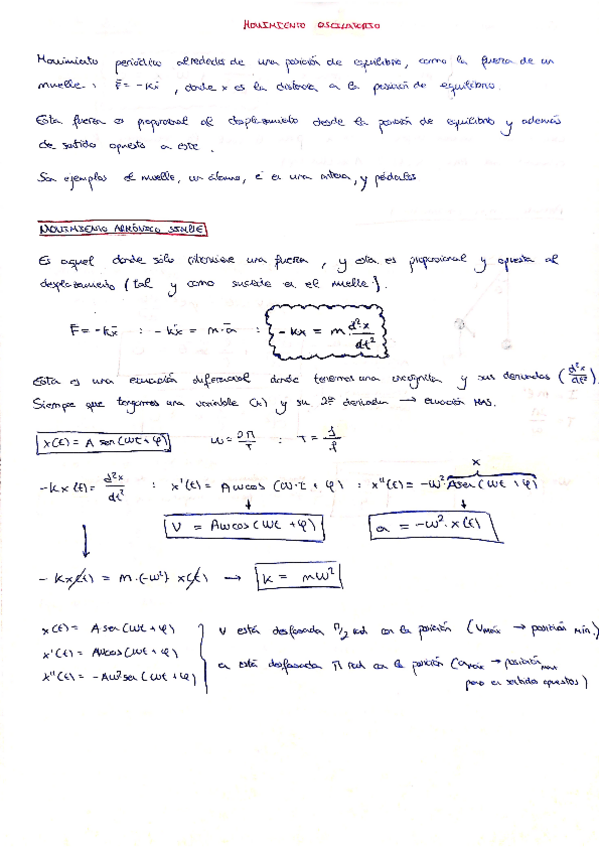 MOVIMIENTO OSCILATORIO
Movimiento periódico alrededor de una posición de equilibrio, como la fuerza de un
muelle: F̄ = -kx̄, donde x es la distancia a la posición de equilibrio.
Esta fuerza es proporcional al desplazamiento desde la posición de equilibrio y además
de sentido opuesto a este.
Son ejemplos el muelle, un átomo, e en una antena, y péndulos
MOVIMIENTO ARMÓNICO SIMPLE
Es aquel donde sólo interviene una fuerza, y esta es proporcional y opuesta al
desplazamiento (tal y como sucede en el muelle).
F̄ = -kx̄ : -kx̄ = m·ā : -kx = m·d²x/dt²
Esta es una ecuación diferencial donde tenemos una incógnita y sus derivadas (d²x/dt²).
Siempre que tengamos una variable (x) y su 2ª derivada → ecuación MAS.
x(t) = A sen(ωt + φ) ω = 2π/T : T = 1/f
x
-kx(t) = d²x/dt² : x'(t) = Aω cos(ω·t + φ) : x''(t) = -ω²·A sen(ωt + φ)
v = Aω cos(ωt + φ) a = -ω²·x(t)
-kx(t) = m·(-ω²) x(t) → k = mω²
x(t) = A sen(ωt + φ)
x'(t) = Aω cos(ωt + φ)
x''(t) = -Aω² sen(ωt + φ)
v está desfasada π/2 rad con la posición (vmáx → posición mín.)
a está desfasada π rad con la posición (amáx → posición máx
pero en sentidos opuestos)